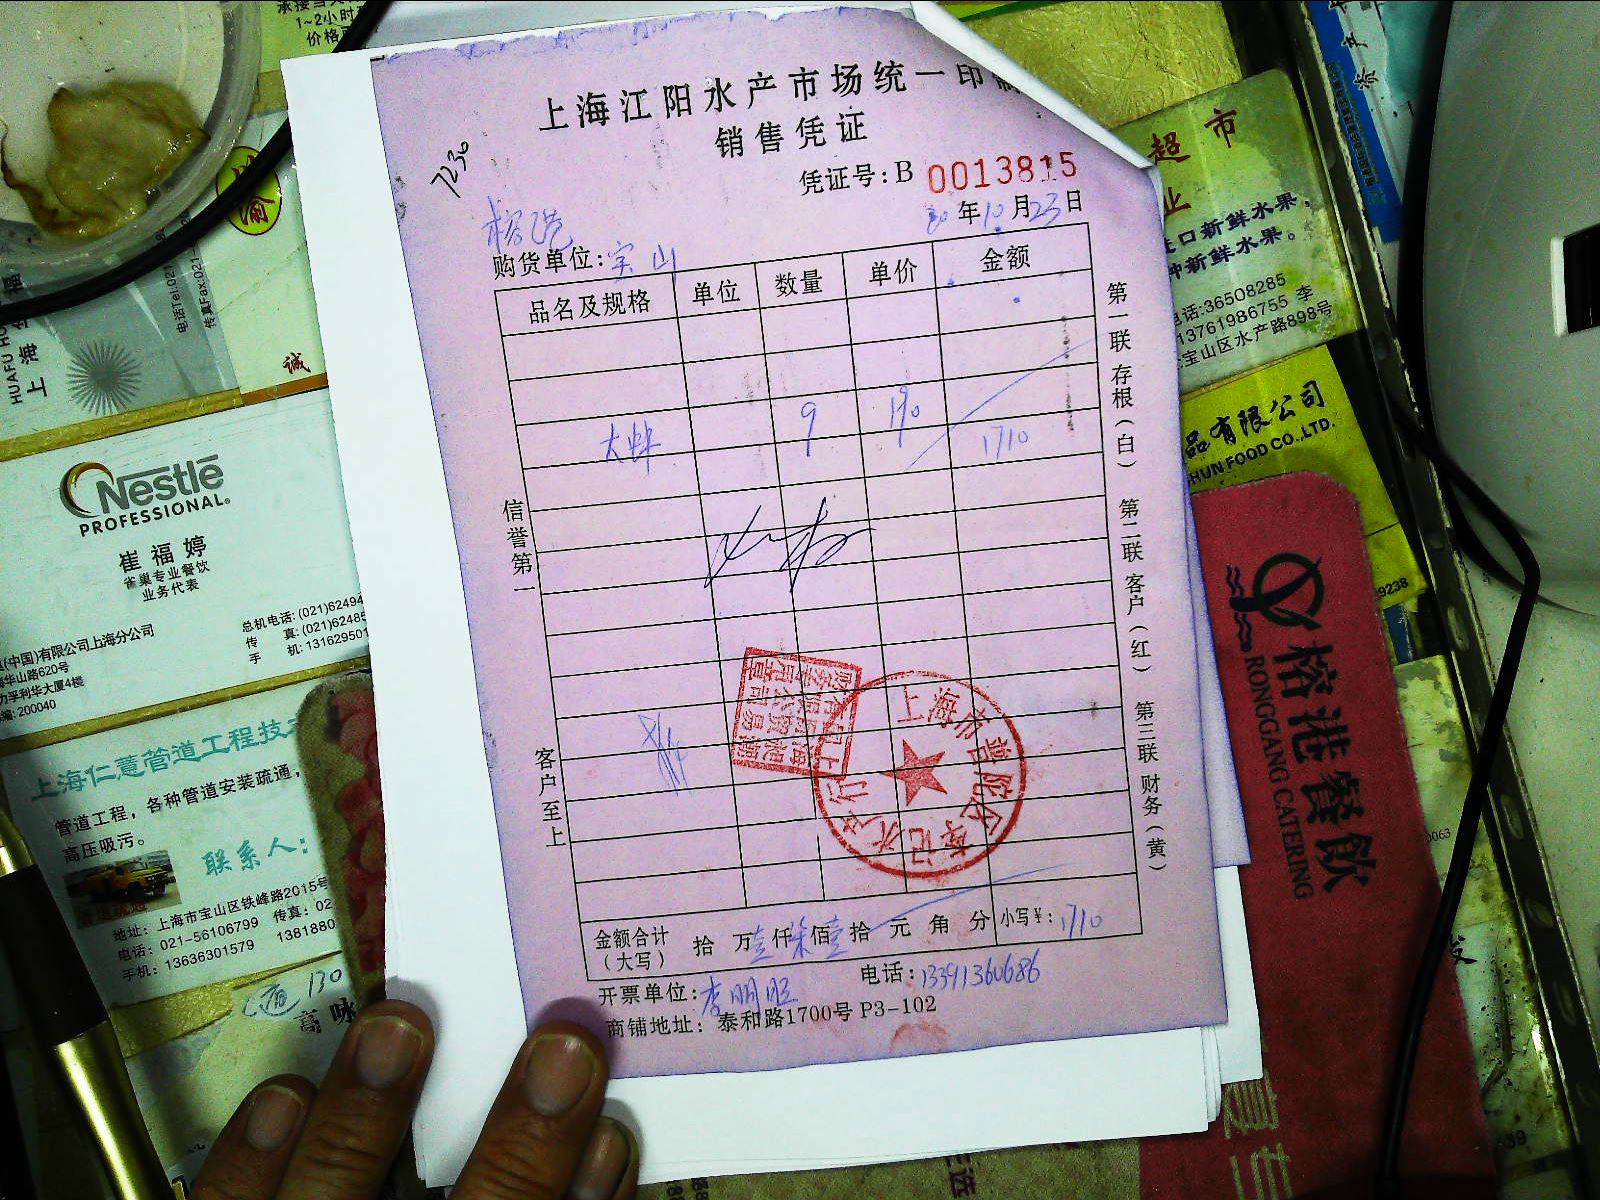 承接当天
1~2小时
上海江阳水产市场统一印
销售凭证
凭证号:B 0013815
7236
榕港
年10月23日
购货单位:宝山
品名及规格 单位 数量 单价 金额
9 190 1710
信誉第一
客户至上
第一联 存根(白) 第二联 客户(红) 第三联 财务(黄)
上海市普陀区
记水产行
金额合计
(大写)
拾 万壹仟柒佰壹拾 元 角 分
小写¥:1710
开票单位:李明
电话:13391360686
商铺地址: 泰和路1700号 P3-102
渝
诚
Nestlé
PROFESSIONAL
崔福婷
雀巢专业餐饮
业务代表
(中国)有限公司上海分公司
华山路620号
孚利华大厦4楼
200040
总机电话: (021)6249
传 真: (021)6248
手 机: 131629501
上海仁薏管道工程技
管道工程,各种管道安装疏通,
高压吸污。
联系人:
地址: 上海市宝山区铁峰路2015号
电话: 021-56106799 传真: 02
手机: 13636301579 1381880
130
高 咏
超市
业
进口新鲜水果,
种新鲜水果。
电话:36508285
13761986755 李
宝山区水产路898号
品有限公司
HUN FOOD CO.,LTD.
榕港餐飲
RONGGANG CATERING